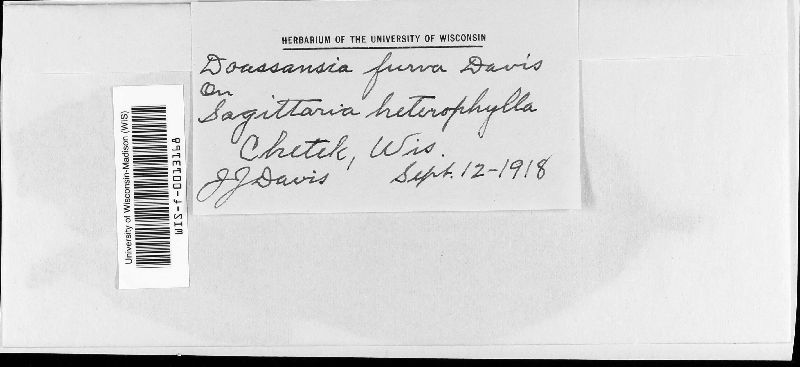 HERBARIUM OF THE UNIVERSITY OF WISCONSIN
Doassansia furva Davis
On
Sagittaria heterophylla
Chetek, Wis.
JJ Davis Sept. 12-1918
University of Wisconsin-Madison (WIS)
WIS-f-0013168